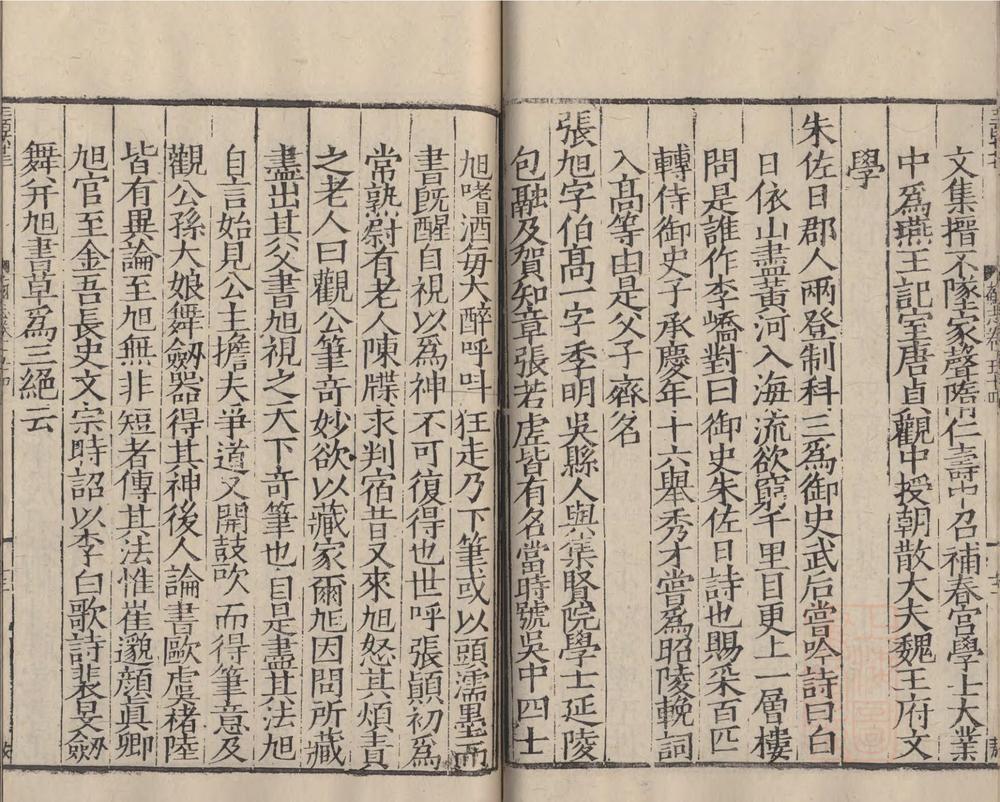 文集搢不隊家聲隋仁壽中召補春宫學士大業
中爲燕王記室唐貞觀中授朝散大夫魏王府文
學
朱佐日郡人兩登制科三爲御史武后嘗吟詩曰白
日依山盡黄河入海流欲窮千里目更上一層樓
問是誰作李嶠對曰御史朱佐日詩也賜采百匹
轉侍御史子承慶年十六舉秀才嘗爲昭陵輓詞
入髙等由是父子齊名
張旭字伯髙一字季明吳縣人與集賢院學士延陵
包融及賀知章張若虛皆有名當時號吳中四士
旭嗜酒毎大醉呼呌狂走乃下筆或以頭濡墨而
書旣醒自視以爲神不可復得也世呼張顚初爲
常熟尉有老人陳牒求判宿昔又來旭怒其煩責
之老人曰觀公筆竒妙欲以藏家爾旭因問所藏
盡出其父書旭視之天下竒筆也自是盡其法旭
自言始見公主擔夫爭道又聞鼓吹而得筆意及
觀公孫大娘舞劔器得其神後人論書歐虞褚陸
皆有異論至旭無非短者傳其法惟崔邈顔眞卿
旭官至金吾長史文宗時詔以李白歌詩裴旻劔
舞并旭書草爲三絕云